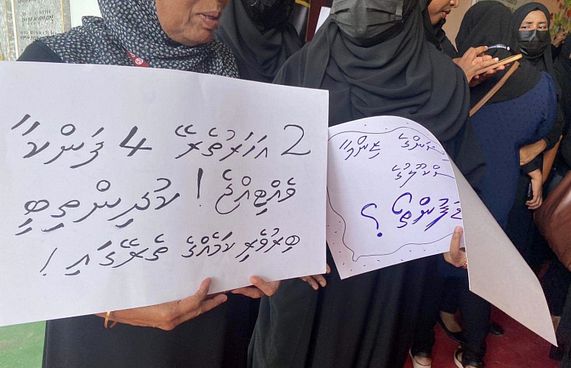 2 އަހަރުތެރޭ 4 ފަންކާ
ވެއްޓިއްޖެ! ކުދިންތިބީ
ބިރުވެރި ކަމެއްގެ ތެރޭގައި!
ސްކޫލުގެ